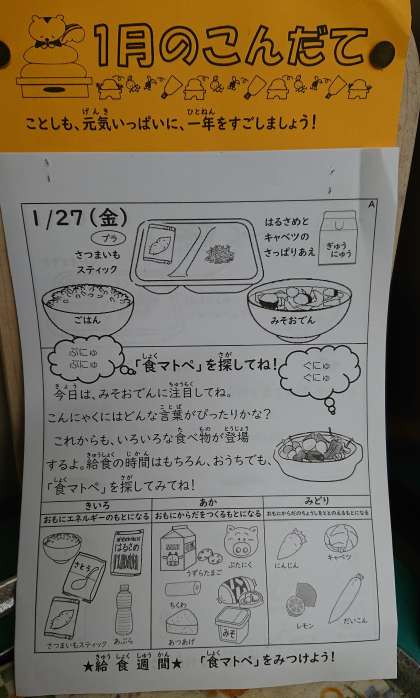 1月のこんだて
ことしも、元気いっぱいに、一年をすごしましょう!
A
1/27(金)
プラ
さつまいも
スティック
はるさめと
キャベツの
さっぱりあえ
ぎゅう
にゅう
ごはん
みそおでん
ぷにゅ
ぷにゅ
「食マトペ」を探してね!
ぐにゅ
ぐにゅ
今日は、みそおでんに注目してね。
こんにゃくにはどんな言葉がぴったりかな?
これからも、いろいろな食べ物が登場
するよ。給食の時間はもちろん、おうちでも、
「食マトペ」を探してみてね!
きいろ
おもにエネルギーのもとになる
あか
おもにからだをつくるもとになる
みどり
おもにからだのちょうしをととのえるもとになる
はるさめ
さとう
さつまいもスティック
あぶら
うずらたまご
ぶたにく
ちくわ
あつあげ
みそ
にんじん
キャベツ
レモン
だいこん
★給食週間★ 「食マトペ」をみつけよう!